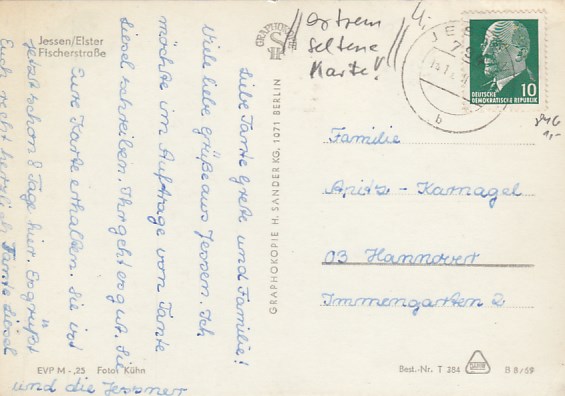 Jessen/Elster
Fischerstraße
Liebe Tante Grete und Familie!
Viele liebe Grüße aus Jessen. Ich
möchte im Auftrage von Tante
Liesel schreiben. Ihr geht es gut. Sie
Eure Karte erhalten. Sie ist
jetzt schon 8 Tage hier. Es grüßt
Euch recht herzlich Tante Liesel
und die Jessner
EVP M -,25 Foto: Kühn
GRAPHOKOPIE
GRAPHOKOPIE H. SANDER KG, 1071 BERLIN
extrem
seltene
Karte!
JES
10
DEUTSCHE
DEMOKRATISCHE REPUBLIK
b
1,-
Familie
Opitz - Karnagel
03 Hannover
Immengarten 2
Best.-Nr. T 384
B 8/69